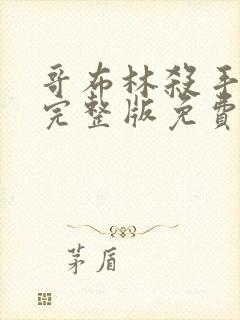 哥布林殺手
完整版免費
茅盾